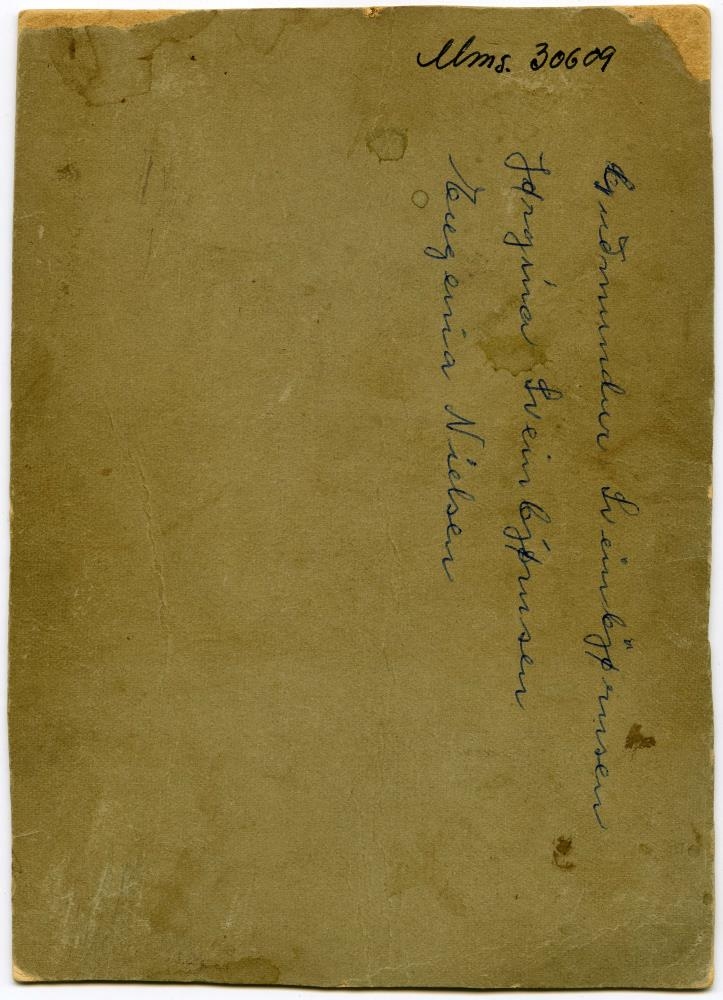 Mms. 30609
Guðmundur Sveinbjørnsen
Jørgína Sveinbjørnsen
Eugenia Nielsen